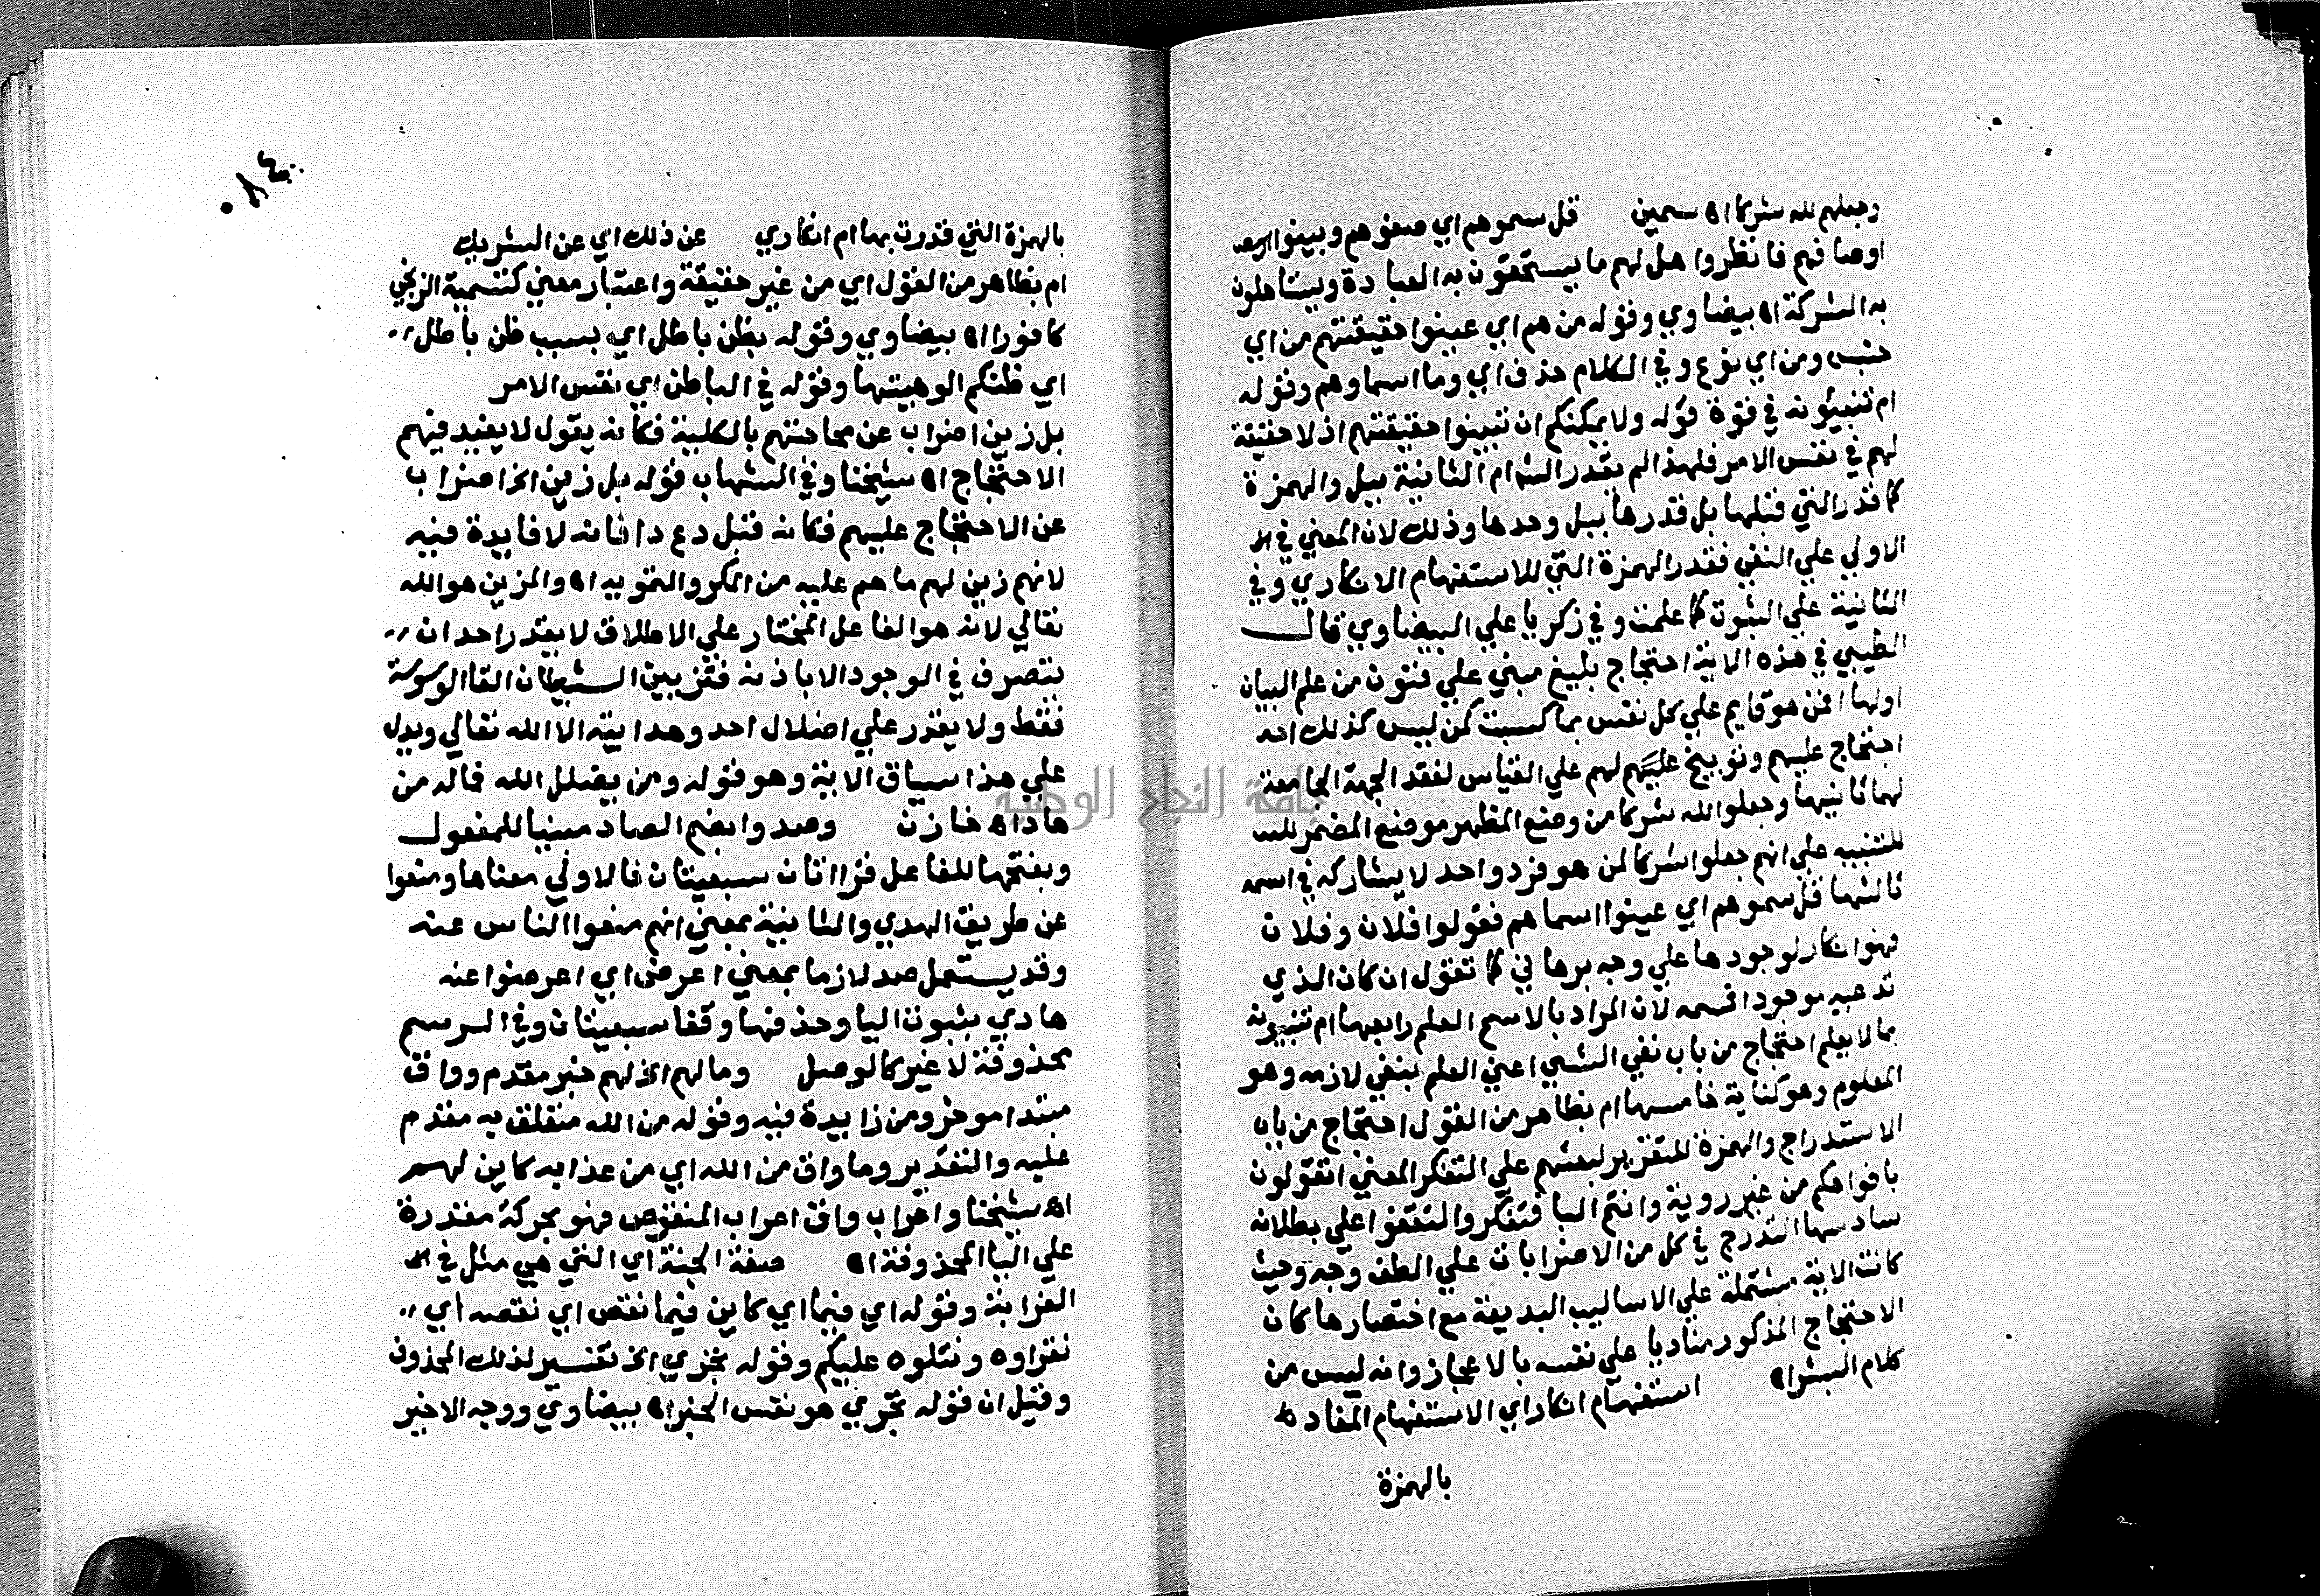 وجعلهم لله شركا اه سمين قل سموهم اي صفوهم وبينوا
اوصافهم فانظروا هل لهم ما يستحقون به العبادة ويستاهلون
به الشركة اه بيضاوي وقوله من هم اي عينوا حقيقتهم من اي
جنس ومن اي نوع وفي الكلام حذف اي وما اسماوهم وقوله
ام تنبئونه في قوة قوله ولا يمكنكم ان تبينوا حقيقتهم اذ لا حقيقة
لهم في نفس الامر فلهذا لم يقدر الش ام الثانية ببل والهمزة
كما قدر التي قبلها بل قدرها ببل وحدها وذلك لان المعني في
الاولي علي النفي فقدر الهمزة التي للاستفهام الانكاري وفي
الثانية علي الثبوت كما علمت وفي زكريا علي البيضاوي قال
الطيبي في هذه الاية احتجاج بليغ مبني علي فنون من علم البيان
اولها افمن هو قايم علي كل نفس بما كسبت كمن ليس كذلك
احتجاج عليهم وتوبيخ لهم علي القياس لفقد الجهة الجامعة
لهما ثانيها وجعلوا لله شركا من وضع المظهر موضع المضمر
للتنبيه علي انهم جعلوا شركا لمن هو فرد واحد لا يشاركه في اسمه
ثالثها قل سموهم اي عينوا اسماهم فقولوا فلان وفلان
فهو انكار لوجودها علي وجه برهاني كما تقول ان كان الذي
تدعيه موجودا فسمه لان المراد بالاسم العلم رابعها ام تنبيونه
بما لا يعلم احتجاج من باب نفي الشي اعني العلم بنفي لازمه وهو
المعلوم وهو كناية خامسها ام بظاهر من القول احتجاج من باب
الاستدراج والهمزة للتقرير لبعثهم علي التفكر المعني اتقولون
بافواهكم من غير روية وانتم البا فتفكروا لتقفوا علي بطلانه
سادسها التدرج في كل من الاضرابات علي الطف وجه وحيث
كانت الاية مشتملة علي الاساليب البديعة مع اختصارها كان
الاحتجاج المذكور مناديا علي نفسه بالاعجاز وانه ليس من
كلام البشر اه استفهام انكار اي الاستفهام المفاد
بالهمزة
بالهمزة التي قدرت بها ام انكاري عن ذلك اي عن التشريك
ام بظاهر من القول اي من غير حقيقة واعتبار معني كتسمية الزنجي
كافورا اه بيضاوي وقوله بظن باطل اي بسبب ظن باطل
اي ظنكم الوهيتها وقوله في الباطن اي نفس الامر
بل زين اضراب عن محاجتهم بالكلية فكانه يقول لا يفيد فيهم
الاحتجاج اه شيخنا وفي الشهاب قوله بل زين الخ اضراب
عن الاحتجاج عليهم فكانه قيل دع ذا فانه لا فايدة فيه
لانهم زين لهم ما هم عليه من المكر والتمويه اه والمزين هو الله
تعالي لانه هو الفاعل المختار علي الاطلاق لا يقدر احد ان
يتصرف في الوجود الا باذنه فتزيين الشيطان القا الوسوسة
فقط ولا يقدر علي اضلال احد وهدايته الا الله تعالي ويدل
علي هذا سياق الاية وهو قوله ومن يضلل الله فما له من
هاد اه خازن وصدوا بضم الصاد مبنيا للمفعول
وبفتحها للفاعل قراتان سبعيتان فالاولي معناها ومنعوا
عن طريق الهدي والثانية بمعني انهم منعوا الناس عنه
وقد يستعمل صد لازما بمعني اعرض اي اعرضوا عنه
هادي بثبوت اليا وحذفها وقفا سبعيتان وفي الرسم
محذوفة لا غير كالوصل وما لهم الخ لهم خبر مقدم وواق
مبتدا موخر ومن زايدة فيه وقوله من الله متعلق به مقدم
عليه والتقدير وما واق من الله اي من عذابه كاين لهم
اه شيخنا واعراب واق اعراب المنقوص فهو بحركة مقدرة
علي اليا المحذوفة اه صفة الجنة اي التي هي مثل في
الغرابة وقوله اي فيما اي كاين فيما نقص اي نقصه اي
نقراوه ونتلوه عليكم وقوله تجري الخ تفسير لذلك المحذوف
وقيل ان قوله تجري هو نفس الخبر اه بيضاوي ووجه الاخير
جامعة النجاح الوطنية